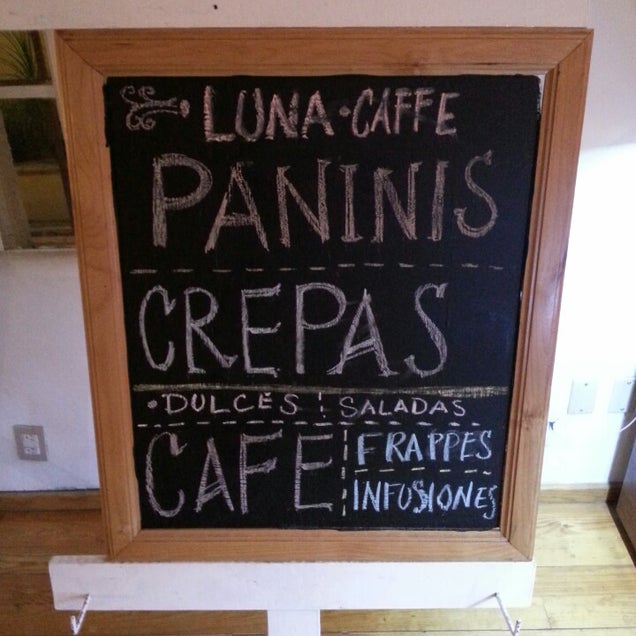 LUNA·CAFFE
PANINIS
CREPAS
·DULCES ¦ SALADAS
CAFE
FRAPPES
INFUSIONES